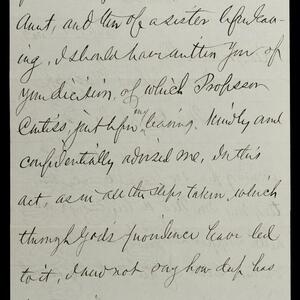 Aunt, and then of a sister before leav-
ing, I should have written you of
your decision, of which Professor
Curtiss, just before my leaving, kindly and
confidentially advised me. In this
act, as in all the steps taken, which
through Gods providence have led
to it, I need not say how deep has